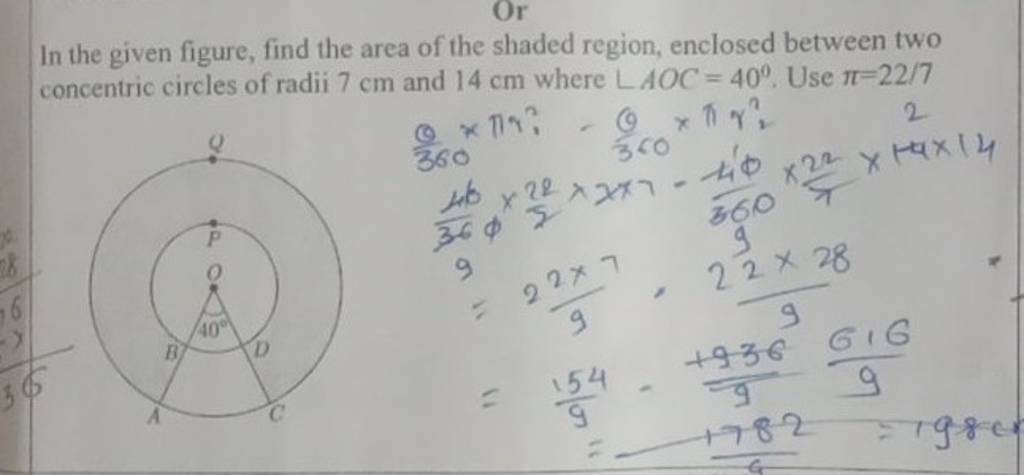 Or
In the given figure, find the area of the shaded region, enclosed between two
concentric circles of radii 7 cm and 14 cm where ∟AOC = 40⁰. Use π=22/7
Q
P
O
40°
B D
A C
θ/360 × πr₁² - θ/360 × πr₂²
40/360 × 22/7 × 7×7 - 40/360 × 22/7 × 14×14
2
9
9
= 22×7/9 - 22×28/9
= 154/9 - 1936/9 616/9
= 1782/9 = 198
36